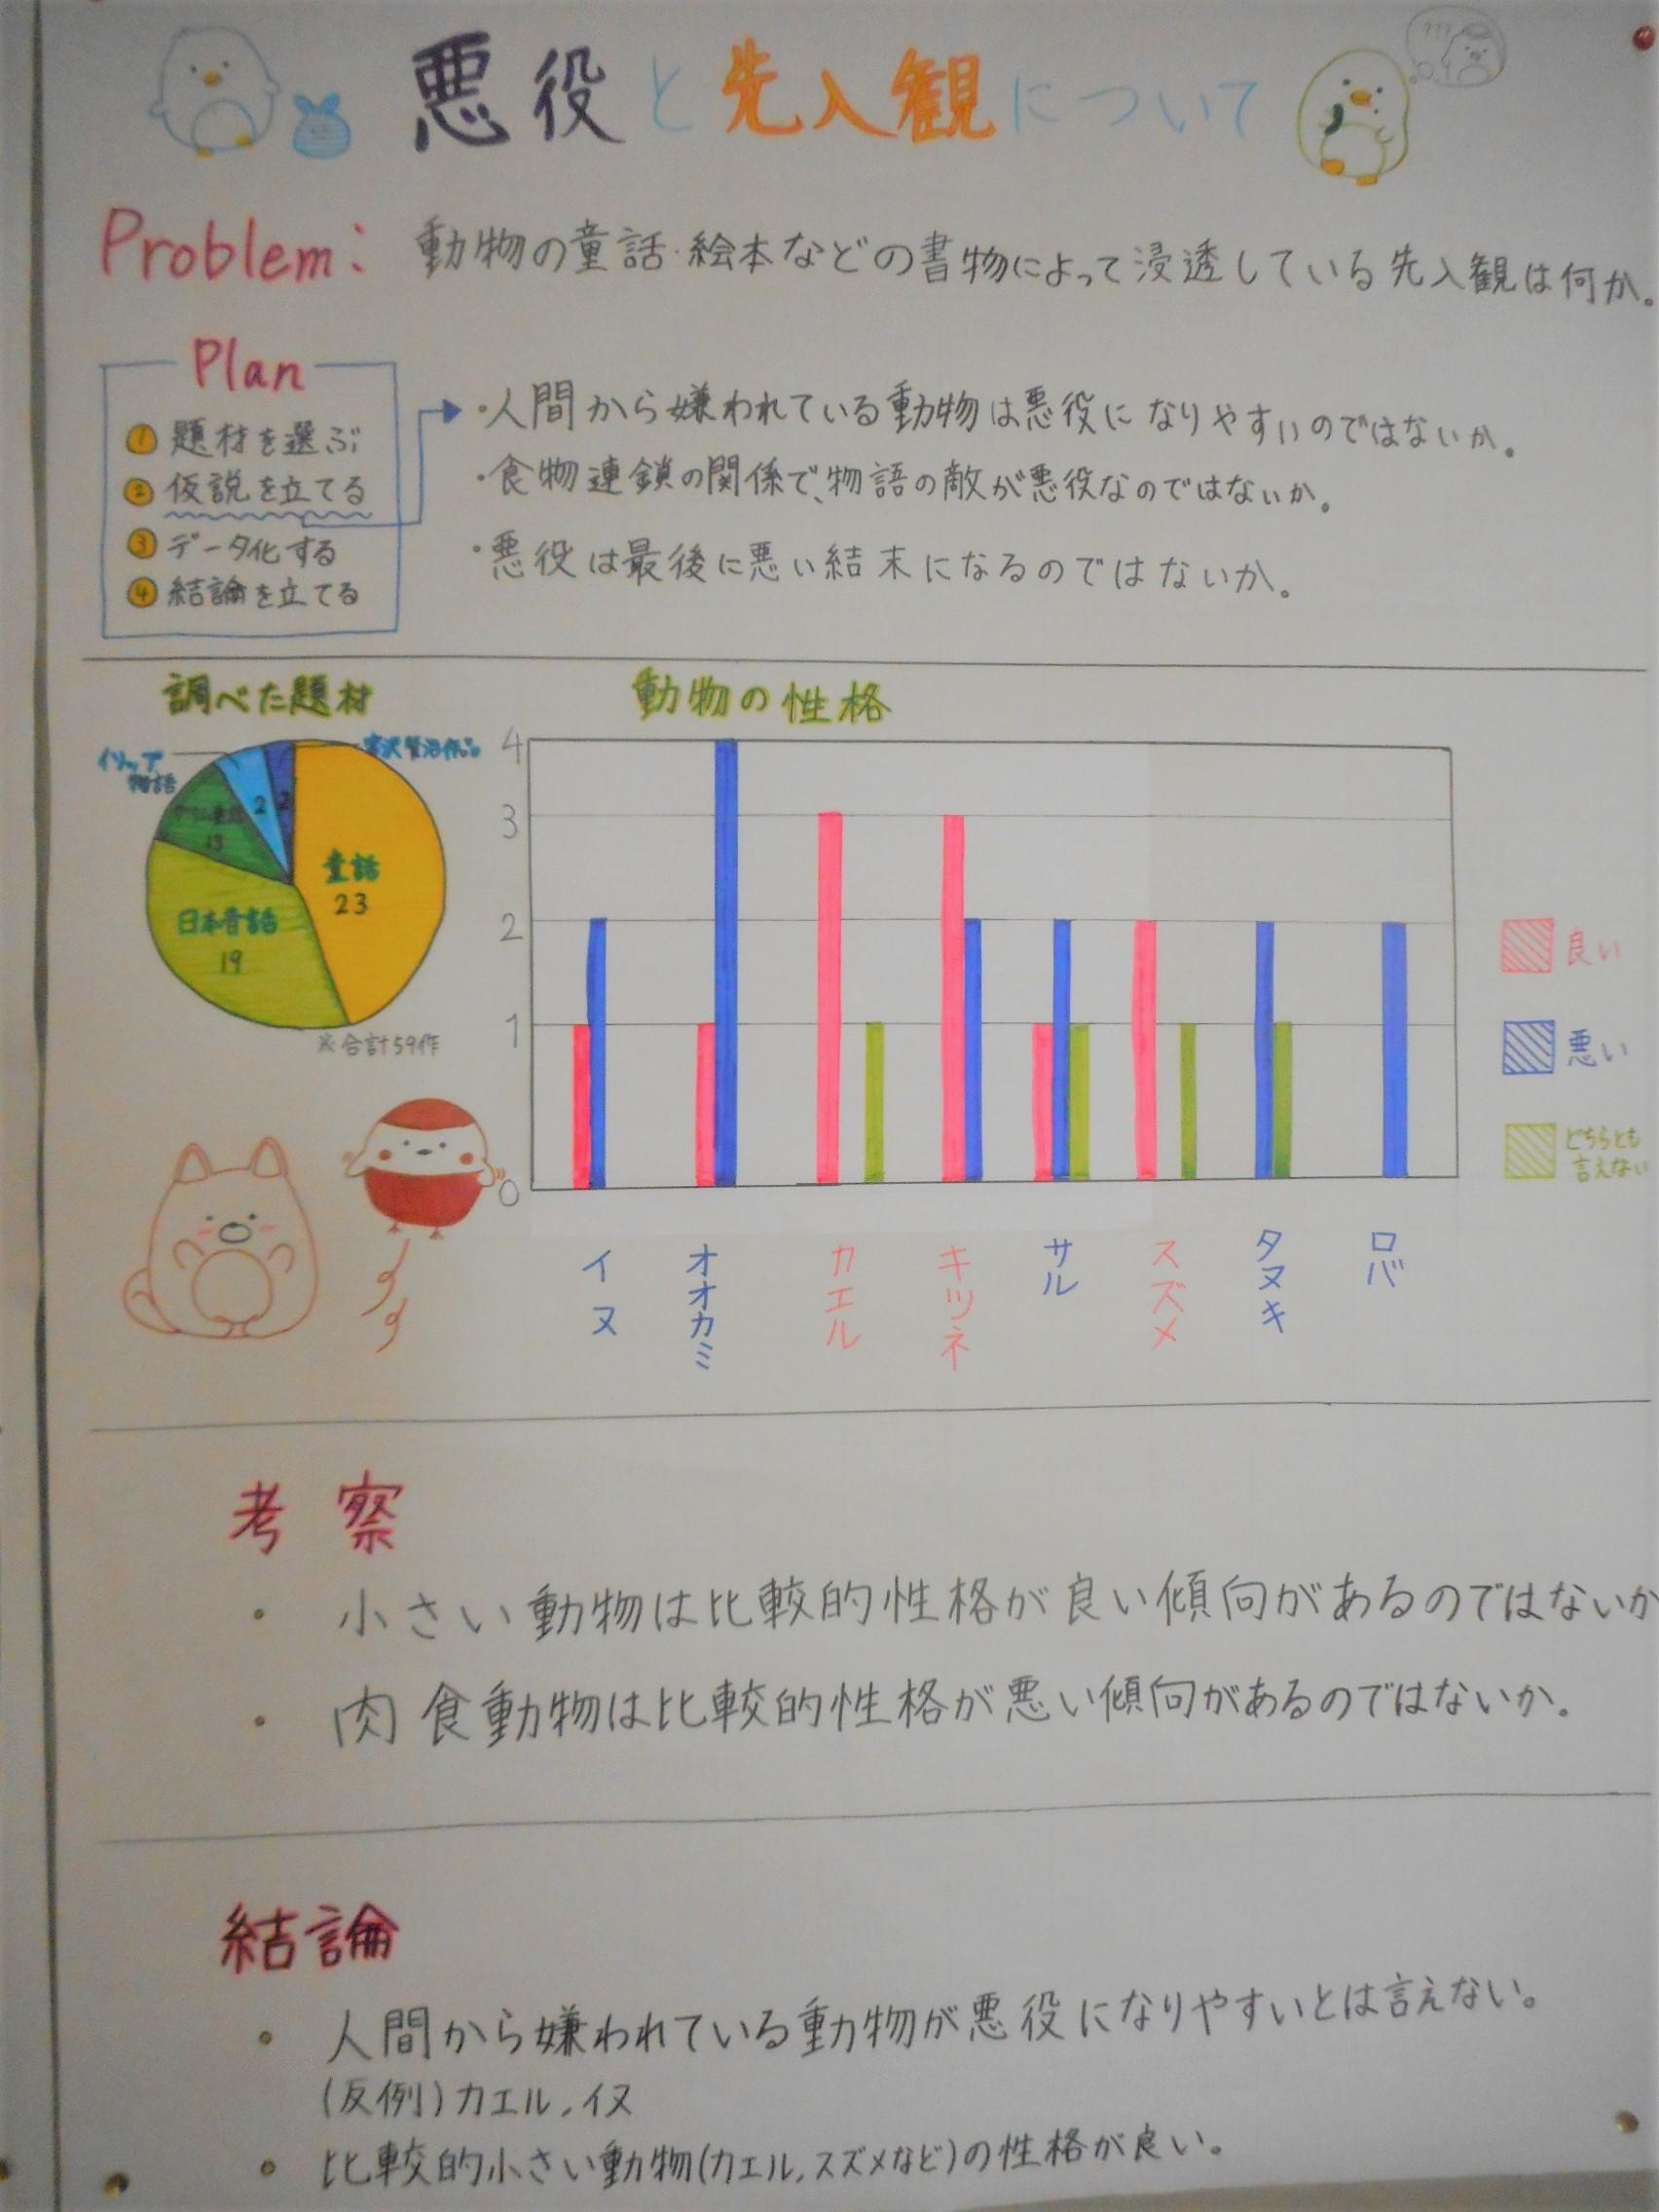 ???
悪役と先入観について
Problem: 動物の童話・絵本などの書物によって浸透している先入観は何か。
Plan
① 題材を選ぶ
② 仮説を立てる
③ データ化する
④ 結論を立てる
・人間から嫌われている動物は悪役になりやすいのではないか。
・食物連鎖の関係で、物語の敵が悪役なのではないか。
・悪役は最後に悪い結末になるのではないか。
調べた題材
イソップ
物語
宮沢賢治作品
13
2
2
童話
23
日本昔話
19
※合計59作
動物の性格
4
3
2
1
0
イヌ
オオカミ
カエル
キツネ
サル
スズメ
タヌキ
ロバ
良い
悪い
どちらとも
言えない
考察
・ 小さい動物は比較的性格が良い傾向があるのではないか
・ 肉食動物は比較的性格が悪い傾向があるのではないか。
結論
・ 人間から嫌われている動物が悪役になりやすいとは言えない。
(反例)カエル,イヌ
・ 比較的小さい動物(カエル,スズメなど)の性格が良い。